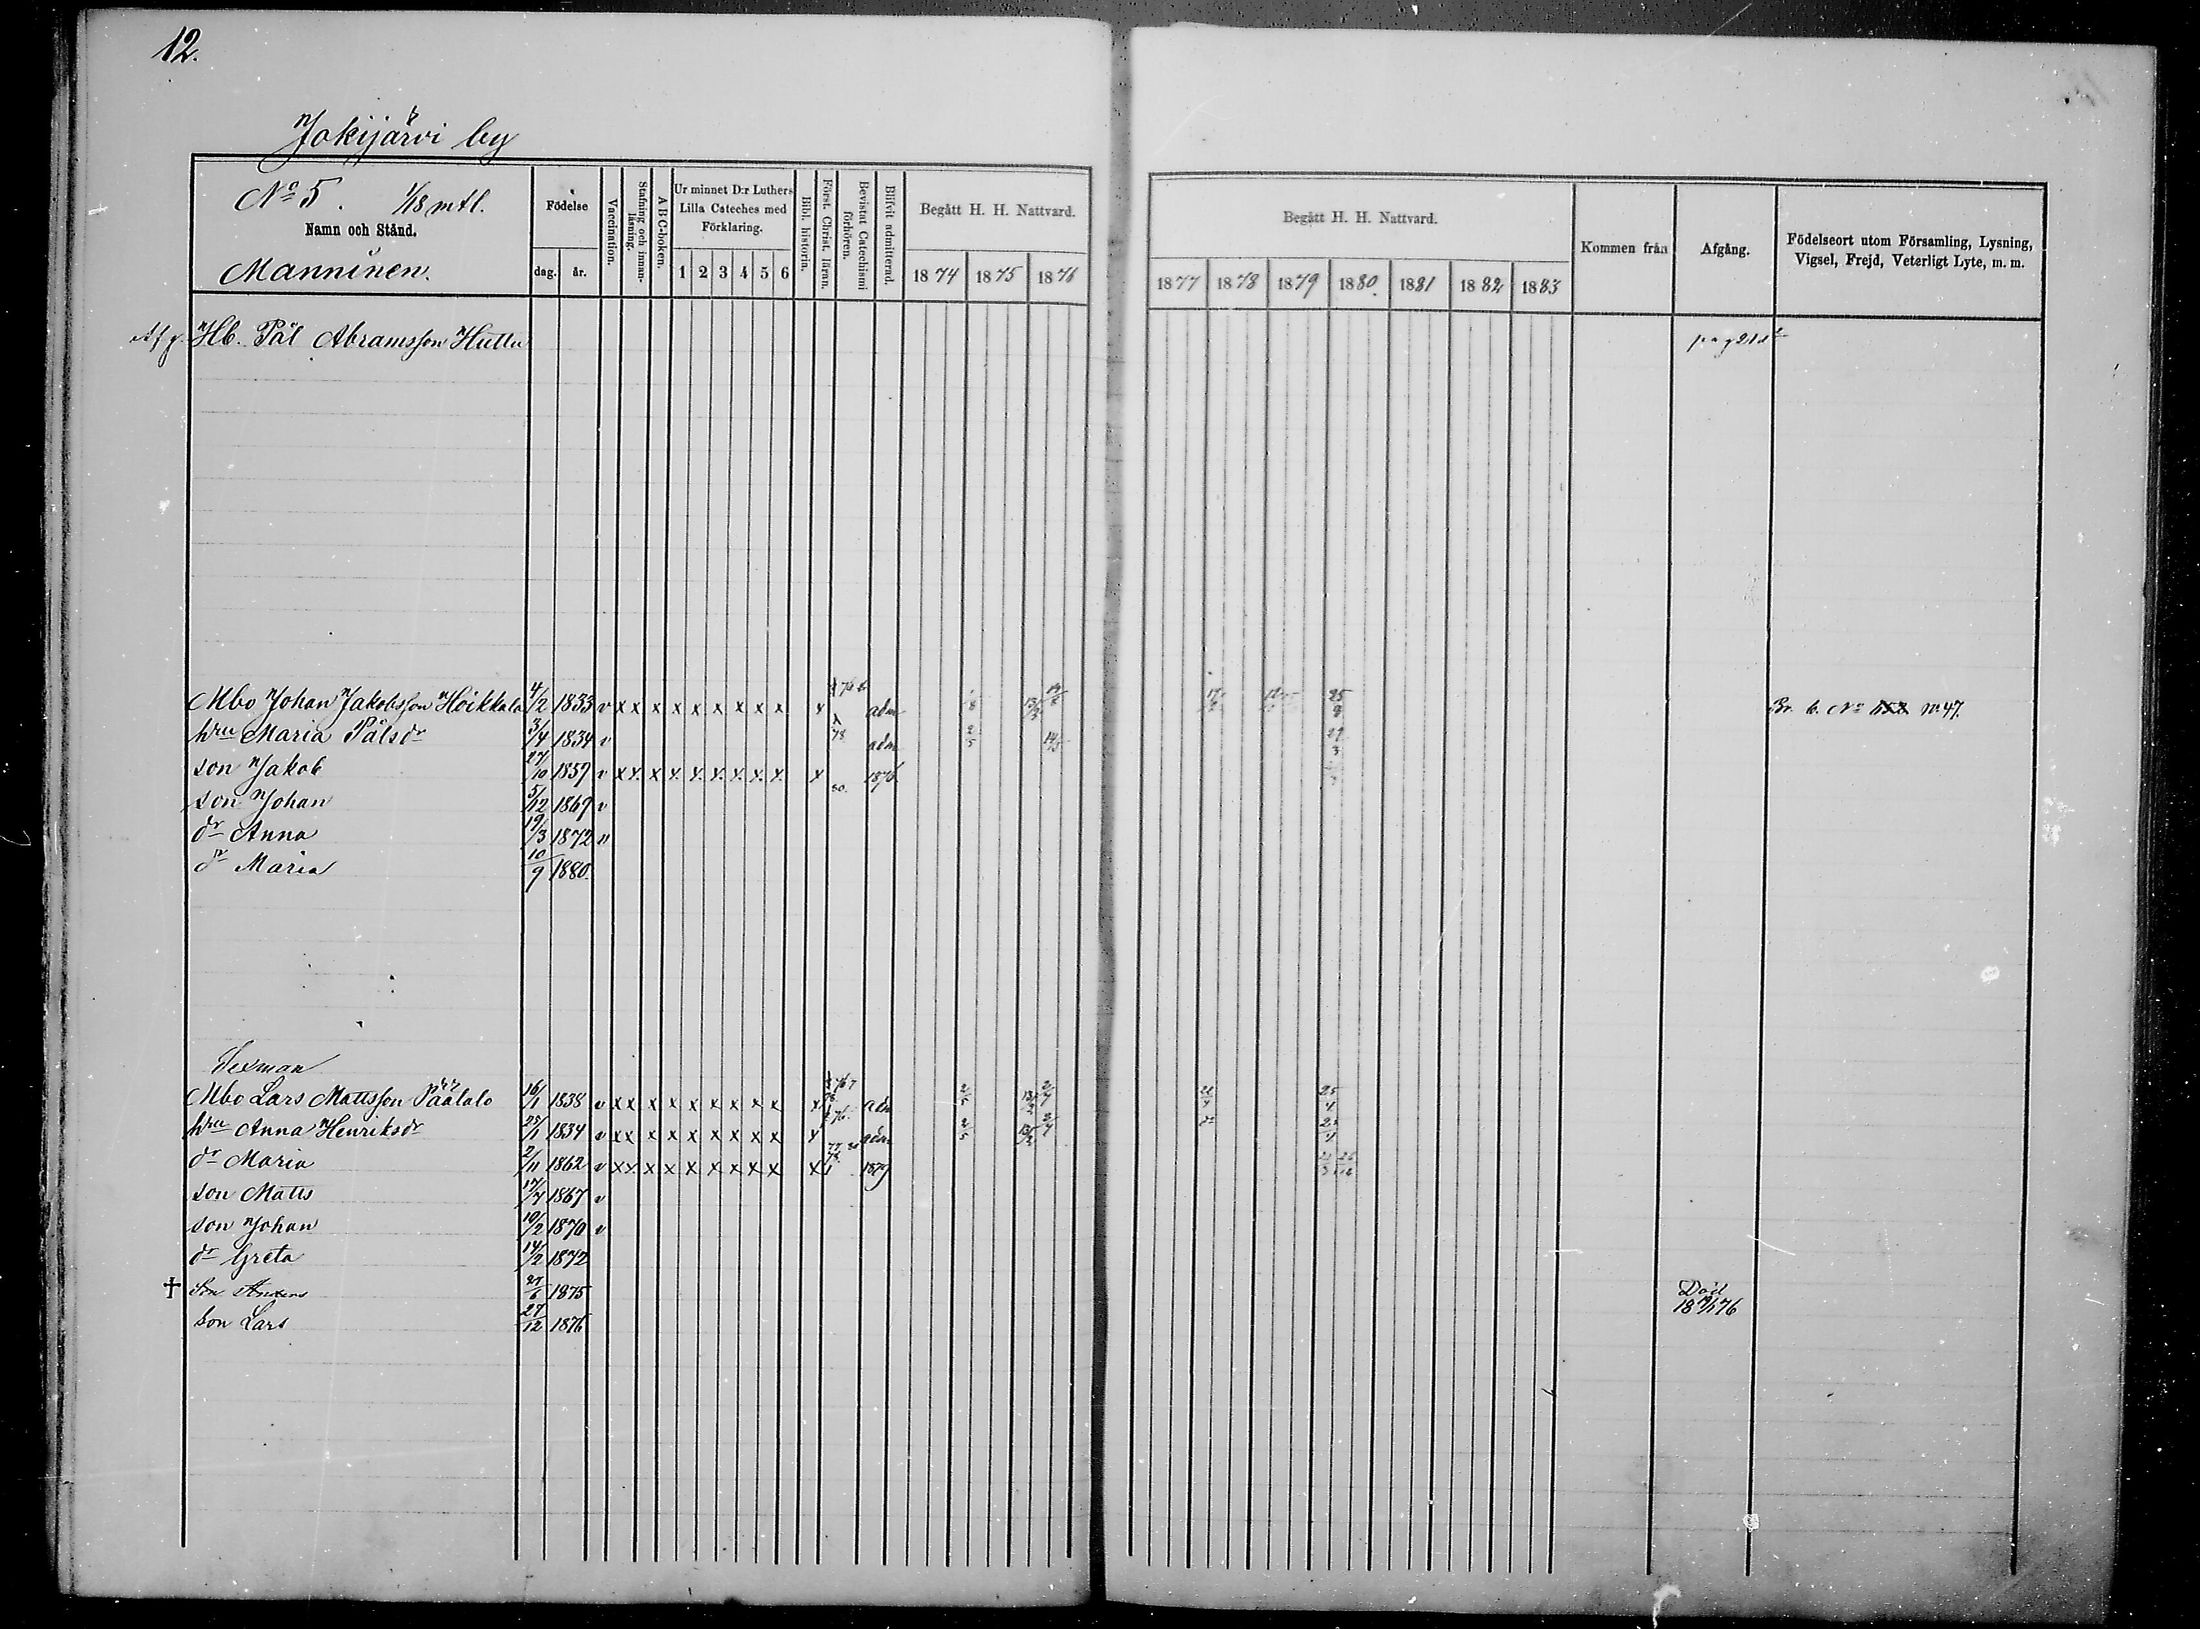 12.
Jokijärvi by
No 5. 1/18 mtl.
Namn och Stånd.
Manninen.
Födelse
dag. år.
Vaccination.
Stafning och innan-
läsning.
ABC-boken.
Ur minnet D:r Luthers
Lilla Cateches med
Förklaring.
1 2 3 4 5 6
Bibl. historia.
Först. Christ. läran.
Bevistat Catechismi
förhören.
Blifvit admitterad.
Begått H. H. Nattvard.
1874 1875 1876
Begått H. H. Nattvard.
1877 1878 1879 1880. 1881 1882 1883
Kommen från
Afgång.
Födelseort utom Församling, Lysning,
Vigsel, Frejd, Veterligt Lyte, m. m.
Afg. Hb. Pål Abramsson Huttu
Mbo Johan Jakobsson Hoikkala 4/2 1833 v x x x x x x x x x x adm
hru Maria Pålsdr 3/4 1834 v adm
son Jakob 27/10 1857 v x x x x x x x x x x 1876
son Johan 5/12 1869 v
dr Anna 19/3 1872 v
dr Maria 10/9 1880.
Mbo Lars Mattsson Päätalo 16/1 1838 v x x x x x x x x x x adm
hru Anna Henriksdr 25/1 1834 v x x x x x x x x x x adm
dr Maria 2/11 1862 v x x x x x x x x x x 1879
son Matts 17/7 1867 v
son Johan 10/2 1870 v
dr Greta 14/2 1872
† son Anders 27/6 1875 Död
son Lars 27/12 1876